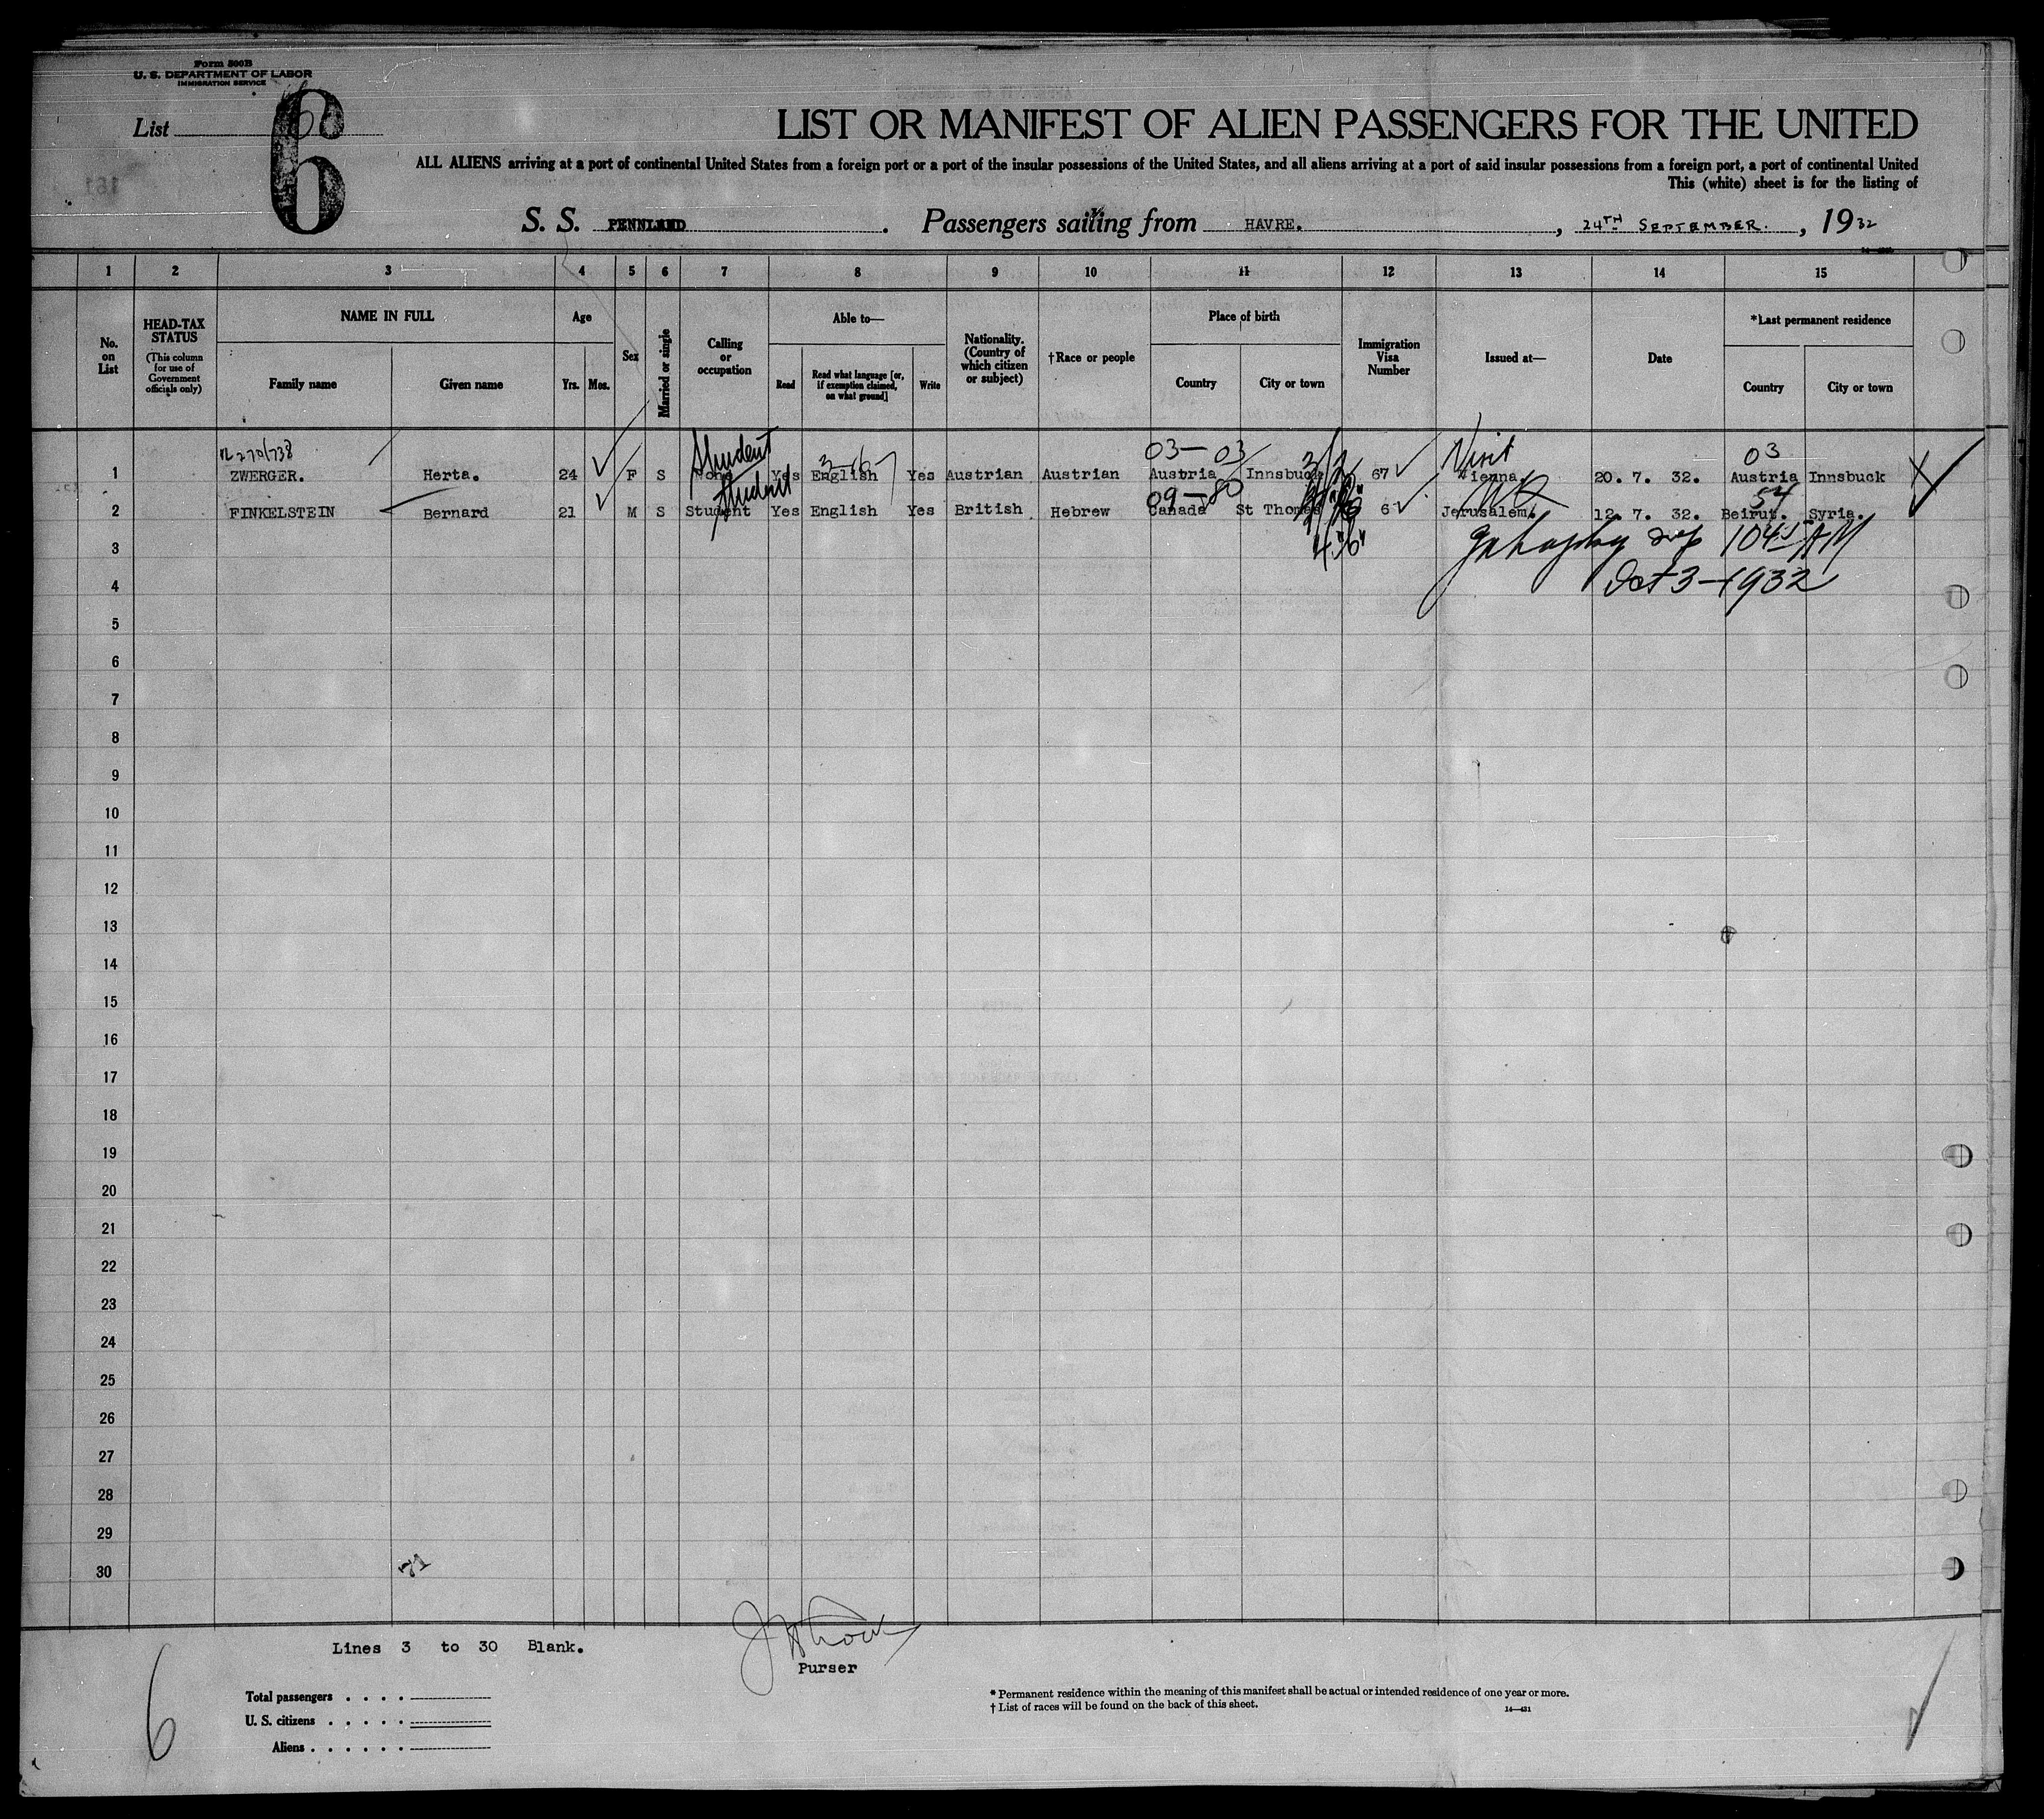 Form 500B
U. S. DEPARTMENT OF LABOR
IMMIGRATION SERVICE
List 6
6
LIST OR MANIFEST OF ALIEN PASSENGERS FOR THE UNITED
ALL ALIENS arriving at a port of continental United States from a foreign port or a port of the insular possessions of the United States, and all aliens arriving at a port of said insular possessions from a foreign port, a port of continental United
This (white) sheet is for the listing of
S. S. PENNLAND . Passengers sailing from HAVRE. , 24TH SEPTEMBER. , 1932
1 2 3 4 5 6 7 8 9 10 11 12 13 14 15
No. on List
HEAD-TAX STATUS (This column for use of Government officials only)
NAME IN FULL
Family name Given name
Age
Yrs. Mos.
Sex
Married or single
Calling or occupation
Able to—
Read Read what language [or, if exemption claimed, on what ground] Write
Nationality. (Country of which citizen or subject)
†Race or people
Place of birth
Country City or town
Immigration Visa Number
Issued at—
Date
*Last permanent residence
Country City or town
Student 3-16 03—03 Visit 03
1 ZWERGER. Herta. 24 F S None Yes English Yes Austrian Austrian Austria Innsbuck 67 Vienna. 20. 7. 32. Austria Innsbuck
Student 09—80 54
2 FINKELSTEIN Bernard 21 M S Student Yes English Yes British Hebrew Canada St Thomas 6 Jerusalem. 12. 7. 32. Beirut. Syria.
3 1045 AM
4 Oct 3—1932
5
6
7
8
9
10
11
12
13
14
15
16
17
18
19
20
21
22
23
24
25
26
27
28
29
30
71
Lines 3 to 30 Blank.
Purser
6
Total passengers . . . .
U. S. citizens . . . . .
Aliens . . . . . .
* Permanent residence within the meaning of this manifest shall be actual or intended residence of one year or more.
† List of races will be found on the back of this sheet.
14—431